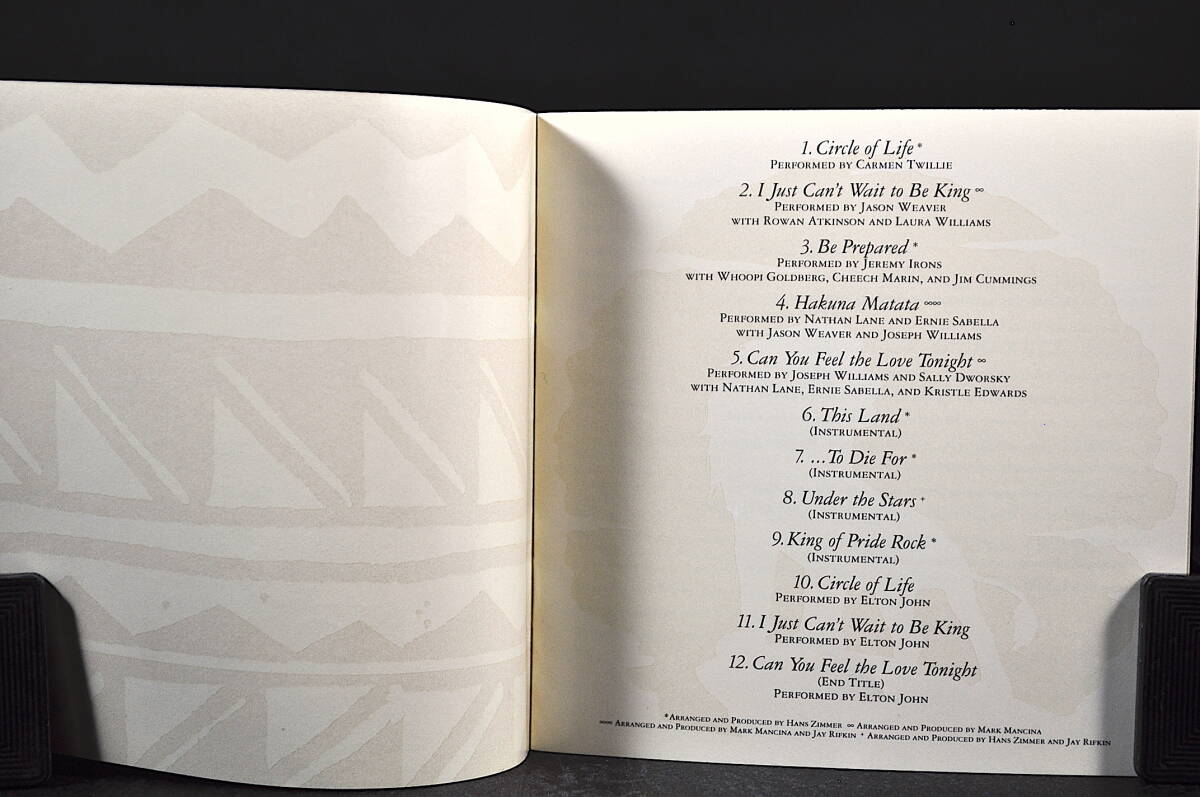 1. Circle of Life *
PERFORMED BY CARMEN TWILLIE
2. I Just Can't Wait to Be King ∞
PERFORMED BY JASON WEAVER
WITH ROWAN ATKINSON AND LAURA WILLIAMS
3. Be Prepared *
PERFORMED BY JEREMY IRONS
WITH WHOOPI GOLDBERG, CHEECH MARIN, AND JIM CUMMINGS
4. Hakuna Matata ∞∞
PERFORMED BY NATHAN LANE AND ERNIE SABELLA
WITH JASON WEAVER AND JOSEPH WILLIAMS
5. Can You Feel the Love Tonight ∞
PERFORMED BY JOSEPH WILLIAMS AND SALLY DWORSKY
WITH NATHAN LANE, ERNIE SABELLA, AND KRISTLE EDWARDS
6. This Land *
(INSTRUMENTAL)
7. ...To Die For *
(INSTRUMENTAL)
8. Under the Stars +
(INSTRUMENTAL)
9. King of Pride Rock *
(INSTRUMENTAL)
10. Circle of Life
PERFORMED BY ELTON JOHN
11. I Just Can't Wait to Be King
PERFORMED BY ELTON JOHN
12. Can You Feel the Love Tonight
(END TITLE)
PERFORMED BY ELTON JOHN
* ARRANGED AND PRODUCED BY HANS ZIMMER ∞ ARRANGED AND PRODUCED BY MARK MANCINA
∞∞ ARRANGED AND PRODUCED BY MARK MANCINA AND JAY RIFKIN + ARRANGED AND PRODUCED BY HANS ZIMMER AND JAY RIFKIN